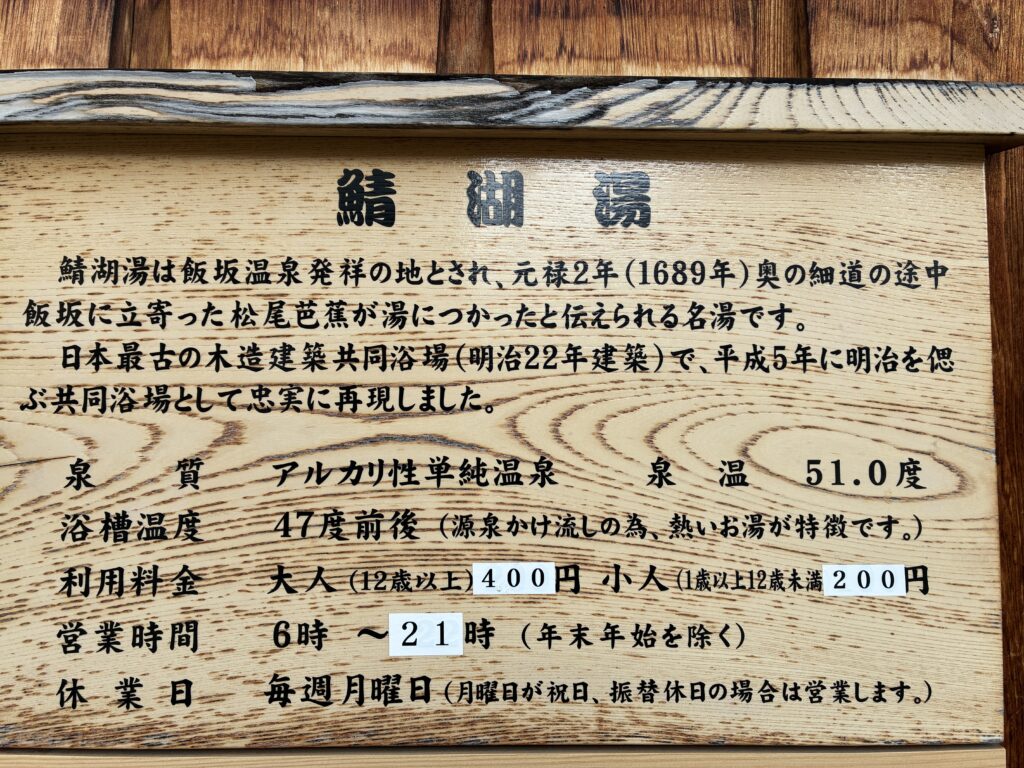 鯖湖湯
鯖湖湯は飯坂温泉発祥の地とされ、元禄2年(1689年)奥の細道の途中
飯坂に立寄った松尾芭蕉が湯につかったと伝えられる名湯です。
日本最古の木造建築共同浴場(明治22年建築)で、平成5年に明治を偲
ぶ共同浴場として忠実に再現しました。
泉質 アルカリ性単純温泉 泉温 51.0度
浴槽温度 47度前後(源泉かけ流しの為、熱いお湯が特徴です。)
利用料金 大人(12歳以上)400円 小人(1歳以上12歳未満200円
営業時間 6時 〜21時 (年末年始を除く)
休業日 毎週月曜日(月曜日が祝日、振替休日の場合は営業します。)